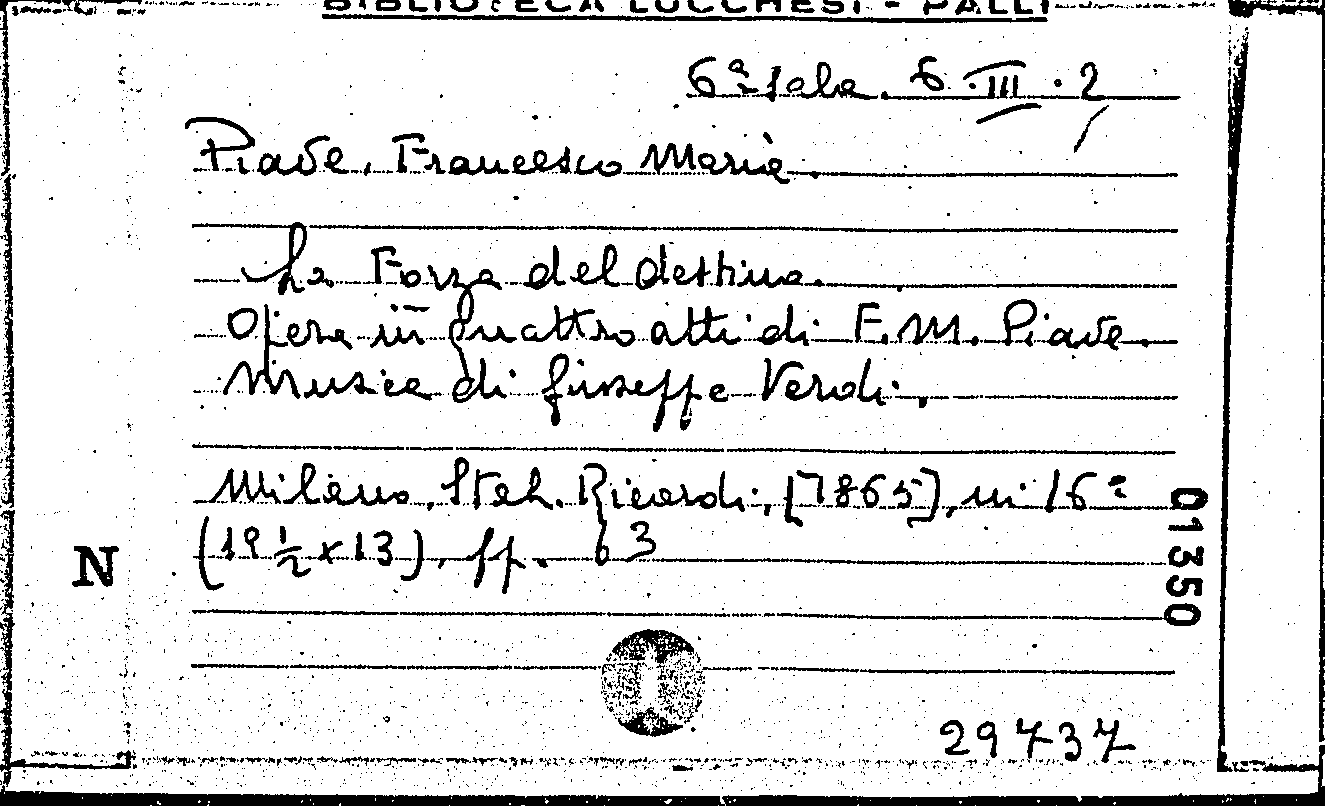 BIBLIOTECA LUCCHESI - PALLI
6ª sala. 6. III. 2
Piave, Francesco Maria.
La Forza del destino.
Opera in quattro atti di F. M. Piave.
Musica di Giuseppe Verdi.
Milano, Stab. Ricordi, [1865], in 16°
(19 ½ x 13), pp. 63
N
01350
29737